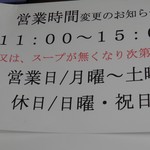 営業時間変更のお知ら
11:00〜15:0
又は、スープが無くなり次第
営業日/月曜〜土曜
休日/日曜・祝日